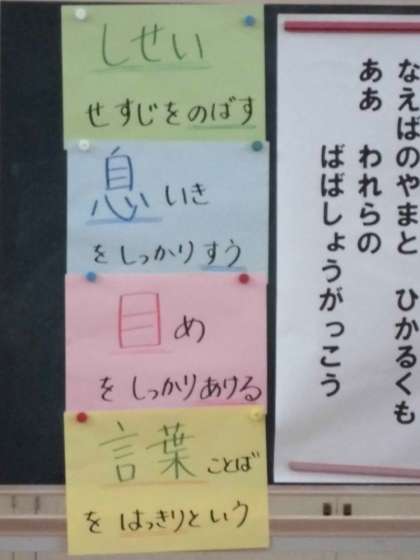 しせい
せすじをのばす
息いき
をしっかりすう
目め
をしっかりあける
言葉ことば
をはっきりという
なえばのやまと　ひかるくも
ああ　われらの
ばばしょうがっこう